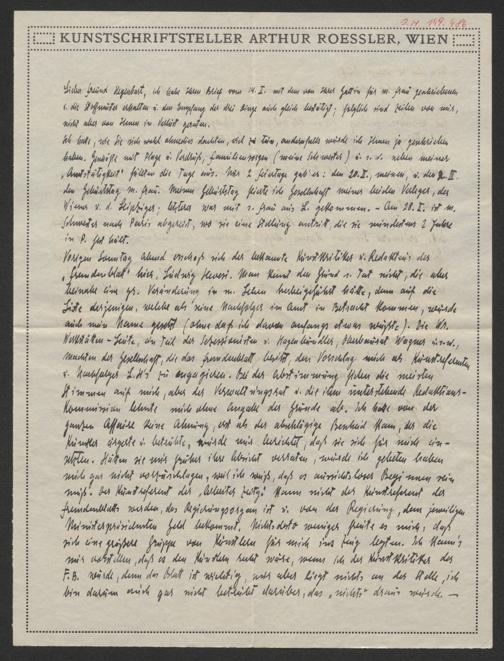 J.N. 149.486
KUNSTSCHRIFTSTELLER ARTHUR ROESSLER, WIEN
Lieber Freund , ich habe Ihren Brief vom mit dem von Ihrer Gattin für m. Frau geschriebenen
u. die Stoffmuster erhalten u. den Empfang der drei Dinge auch gleich bestätigt; folglich sind Zeilen von mir,
nicht aber von Ihnen in Verlust geraten.
Ich habe, wie Sie sich wohl ohnedies dachten, viel zu tun, andernfalls würde ich Ihnen ja geschrieben
haben. Geschäfte mit Plage u. Verdruß, Familiensorgen (meine Schwester) u. s. w. neben meiner
„Amtstätigkeit“ füllten die Tage aus. Nur 2 Feiertage gab es: den 20. II., meinen, u. den II
den Geburtstag m. Frau. Meinen Geburtstag feierte ich Gesellschaft meiner beiden Verleger, des
Wiener u. d. Leipziger; letzterer war mit s. Frau aus L. gekommen. – Am II. ist m.
Schwester nach Paris abgereist, wo sie eine Stellung antritt, die sie mindestens 2 Jahre
in P. fest hält.
Vorigen Sonntag abend erschoß sich der bekannte Kunstkritiker u. Redakteur des
„Fremdenblatt“ hier, Ludwig Hevesi. Man kennt den Grund s. Tat nicht, die aber
beinahe eine gr. Veränderung in m. Leben herbeigeführt hätte, denn auf die
Liste derjenigen, welche als seine Nachfolger im Amt in Betracht kommen, wurde
auch mein Name gesetzt (ohne daß ich davon anfangs etwas wußte). Die
Werkstätten-Leute, ein Teil der Secessionisten u. Hagenbündler, Oberbaurat Wagner u.s.w.,
machten der Gesellschaft, die das Fremdenblatt besitzt, den Vorschlag mich als Kunstreferenten
u. Nachfolger zu engagieren. Bei der Abstimmung fielen die meisten
Stimmen auf mich, aber der Verwaltungsrat u. die ihm unterstehende Redaktions-
Kommission lehnte mich ohne Angabe der Gründe ab. Ich hatte von der
ganzen Affaire keine Ahnung, erst als der abschlägige Bescheid kam, der die
Künstler ärgerte u. betrübte, wurde mir berichtet, daß sie sich für mich ein-
setzten. Hätten sie mir früher ihre Absicht verraten, würde ich gebeten haben
mich gar nicht vorzuschlagen, weil ich weiß, daß es aussichtsloses Beginnen sein
muß. Der Kunstreferent der „Arbeiter Zeitg.“ kann nicht der Kunstreferent der
Fremdenblatts werden, das Regierungsorgan ist u. von der Regierung, dem jeweiligen
Ministerpräsidenten Geld bekommt. Nichtsdesto weniger freute es mich, daß
sich eine größere Gruppe von Künstlern für mich ins Zeug legten. Ich kann's
mir vorstellen, daß es den Künstlern recht wäre, wenn ich der Kunstkritiker des
F.B. würde, denn das Blatt ist wichtig, mir aber liegt nichts an der Stelle, ich
bin darum auch gar nicht betrübt darüber, das „nichts“ draus wurde. –